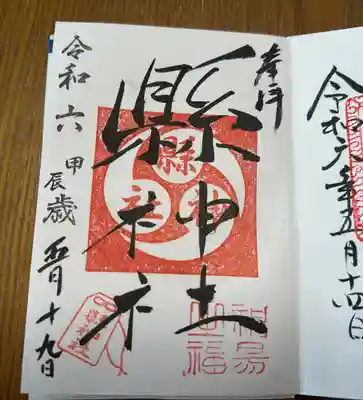 奉拝
縣神社
縣神社
令和六甲辰歳五月十九日
令和六年五月十四日